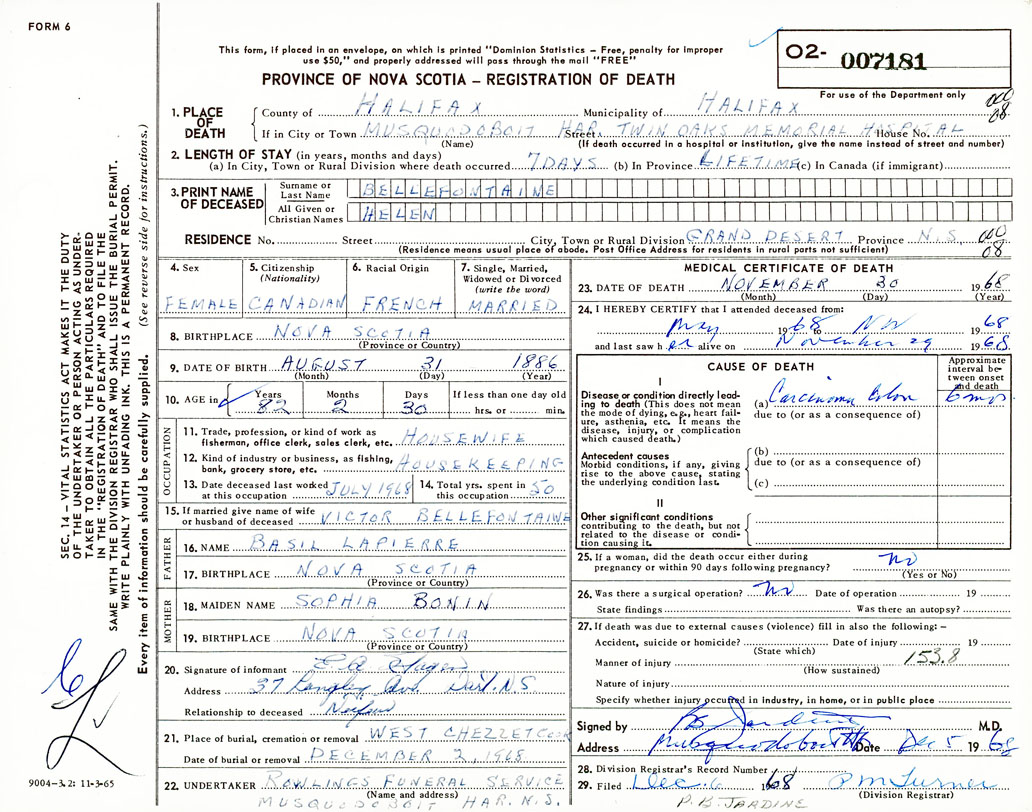 FORM 6
This form, if placed in an envelope, on which is printed "Dominion Statistics – Free, penalty for improper
use $50," and properly addressed will pass through the mail "FREE"
PROVINCE OF NOVA SCOTIA – REGISTRATION OF DEATH
O2- 007181
For use of the Department only
1. PLACE OF DEATH
County of HALIFAX Municipality of HALIFAX
If in City or Town MUSQUODOBOIT HAR. Street TWIN OAKS MEMORIAL HOSPITAL House No.
(Name) (If death occurred in a hospital or institution, give the name instead of street and number)
08
2. LENGTH OF STAY (in years, months and days)
(a) In City, Town or Rural Division where death occurred 7 DAYS (b) In Province LIFETIME (c) In Canada (if immigrant)
3. PRINT NAME OF DECEASED
Surname or Last Name BELLEFONTAINE
All Given or Christian Names HELEN
RESIDENCE No. Street City, Town or Rural Division GRAND DESERT Province N.S.
(Residence means usual place of abode. Post Office Address for residents in rural parts not sufficient)
08
4. Sex FEMALE
5. Citizenship (Nationality) CANADIAN
6. Racial Origin FRENCH
7. Single, Married, Widowed or Divorced (write the word) MARRIED
8. BIRTHPLACE NOVA SCOTIA
(Province or Country)
9. DATE OF BIRTH AUGUST 31 1886
(Month) (Day) (Year)
10. AGE in Years 82 Months 2 Days 30 If less than one day old hrs. or min.
OCCUPATION
11. Trade, profession, or kind of work as fisherman, office clerk, sales clerk, etc. HOUSEWIFE
12. Kind of industry or business, as fishing, bank, grocery store, etc. HOUSEKEEPING
13. Date deceased last worked at this occupation JULY 1968
14. Total yrs. spent in this occupation 50
15. If married give name of wife or husband of deceased VICTOR BELLEFONTAINE
FATHER
16. NAME BASIL LAPIERRE
17. BIRTHPLACE NOVA SCOTIA
(Province or Country)
MOTHER
18. MAIDEN NAME SOPHIA BONIN
19. BIRTHPLACE NOVA SCOTIA
(Province or Country)
20. Signature of informant
Address 37 Langley Ave. Dart. N.S.
Relationship to deceased
21. Place of burial, cremation or removal WEST CHEZZETCOOK
Date of burial or removal DECEMBER 2, 1968
22. UNDERTAKER ROWLINGS FUNERAL SERVICE
(Name and address)
MUSQUODOBOIT HAR. N.S.
MEDICAL CERTIFICATE OF DEATH
23. DATE OF DEATH NOVEMBER 30 1968
(Month) (Day) (Year)
24. I HEREBY CERTIFY that I attended deceased from:
May 1968 to Nov 1968
and last saw her alive on November 29 1968
CAUSE OF DEATH
Approximate interval between onset and death
I
Disease or condition directly leading to death (This does not mean the mode of dying, e.g., heart failure, asthenia, etc. It means the disease, injury, or complication which caused death.)
(a) Carcinoma Colon 6 mos
due to (or as a consequence of)
Antecedent causes
Morbid conditions, if any, giving rise to the above cause, stating the underlying condition last.
(b)
due to (or as a consequence of)
(c)
II
Other significant conditions
contributing to the death, but not related to the disease or condition causing it.
25. If a woman, did the death occur either during pregnancy or within 90 days following pregnancy? No
(Yes or No)
26. Was there a surgical operation? No Date of operation 19
State findings Was there an autopsy?
27. If death was due to external causes (violence) fill in also the following: –
Accident, suicide or homicide? Date of injury 19
(State which)
Manner of injury 153.8
(How sustained)
Nature of injury
Specify whether injury occurred in industry, in home, or in public place
Signed by PB Jardine M.D.
Address Musquodoboit Date Dec 5 1968
28. Division Registrar's Record Number
29. Filed Dec. 6 1968 P M Turner
(Division Registrar)
P.B. JARDINE
SEC. 14 – VITAL STATISTICS ACT MAKES IT THE DUTY
OF THE UNDERTAKER OR PERSON ACTING AS UNDER-
TAKER TO OBTAIN ALL THE PARTICULARS REQUIRED
IN THE "REGISTRATION OF DEATH" AND TO FILE THE
SAME WITH THE DIVISION REGISTRAR WHO SHALL ISSUE THE BURIAL PERMIT.
WRITE PLAINLY WITH UNFADING INK. THIS IS A PERMANENT RECORD.
Every item of information should be carefully supplied. (See reverse side for instructions.)
9004-3.2: 11-3-65